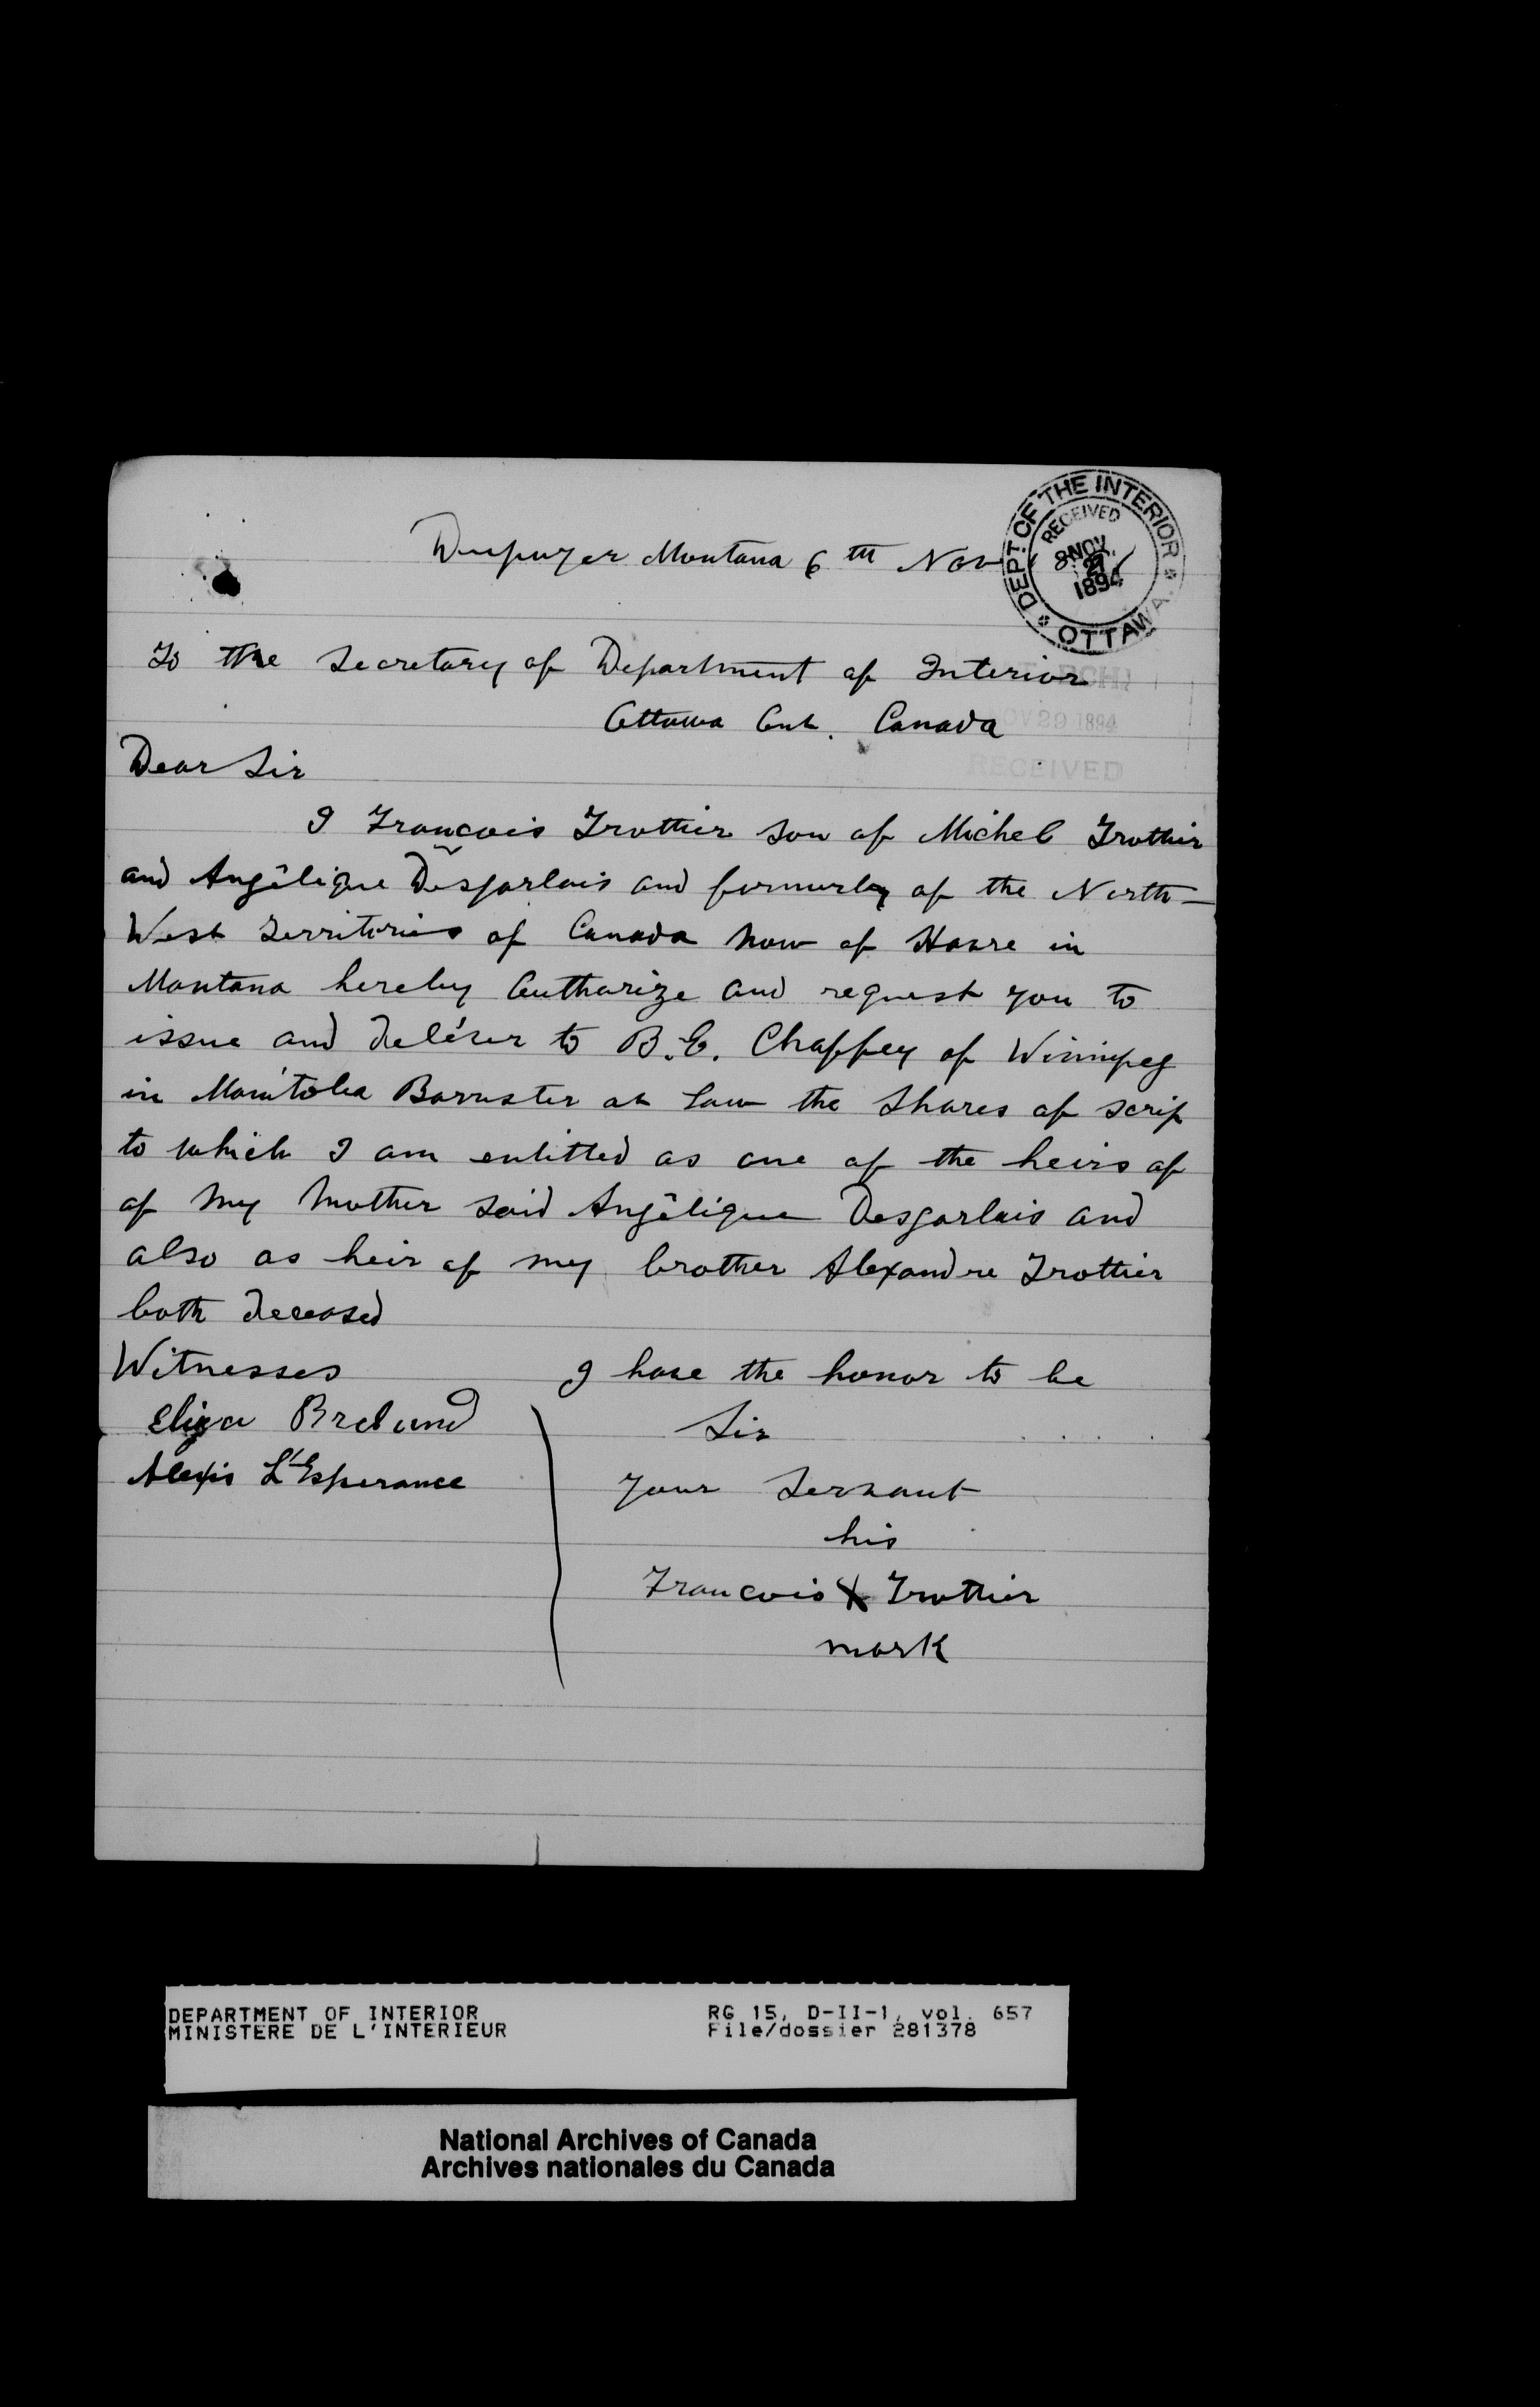 Dupuyer Montana 6th Nov
DEPT. OF THE INTERIOR
RECEIVED
NOV
1894
OTTAWA
To the Secretary of Department of Interior
Ottawa Ont. Canada
NOV 29 1894
RECEIVED
Dear Sir
I Francois Trottier son of Michel Trottier
and Angèlique Desjarlais and formerly of the North-
West Territories of Canada now of Havre in
Montana hereby Authorize and request you to
issue and deliver to B. E. Chaffey of Winnipeg
in Manitoba Barrister at Law the Shares of scrip
to which I am entitled as one of the heirs of
of my Mother said Angèlique Desjarlais and
also as heir of my brother Alexandre Trottier
both deceased
Witnesses
Eliza Breland
Alexis L'Esperance
I have the honor to be
Sir
Your Servant
his
Francois X Trottier
mark
DEPARTMENT OF INTERIOR
MINISTERE DE L'INTERIEUR
RG 15, D-II-1, vol. 657
File/dossier 281378
National Archives of Canada
Archives nationales du Canada